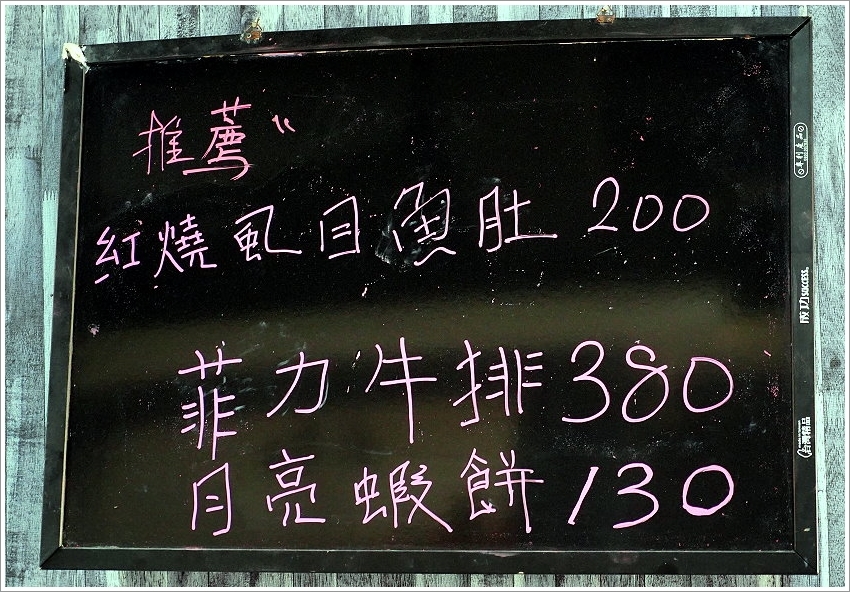 推薦〃
紅燒虱目魚肚 200
菲力牛排 380
月亮蝦餅 130
專利產品
成功 SUCCESS
台灣精品